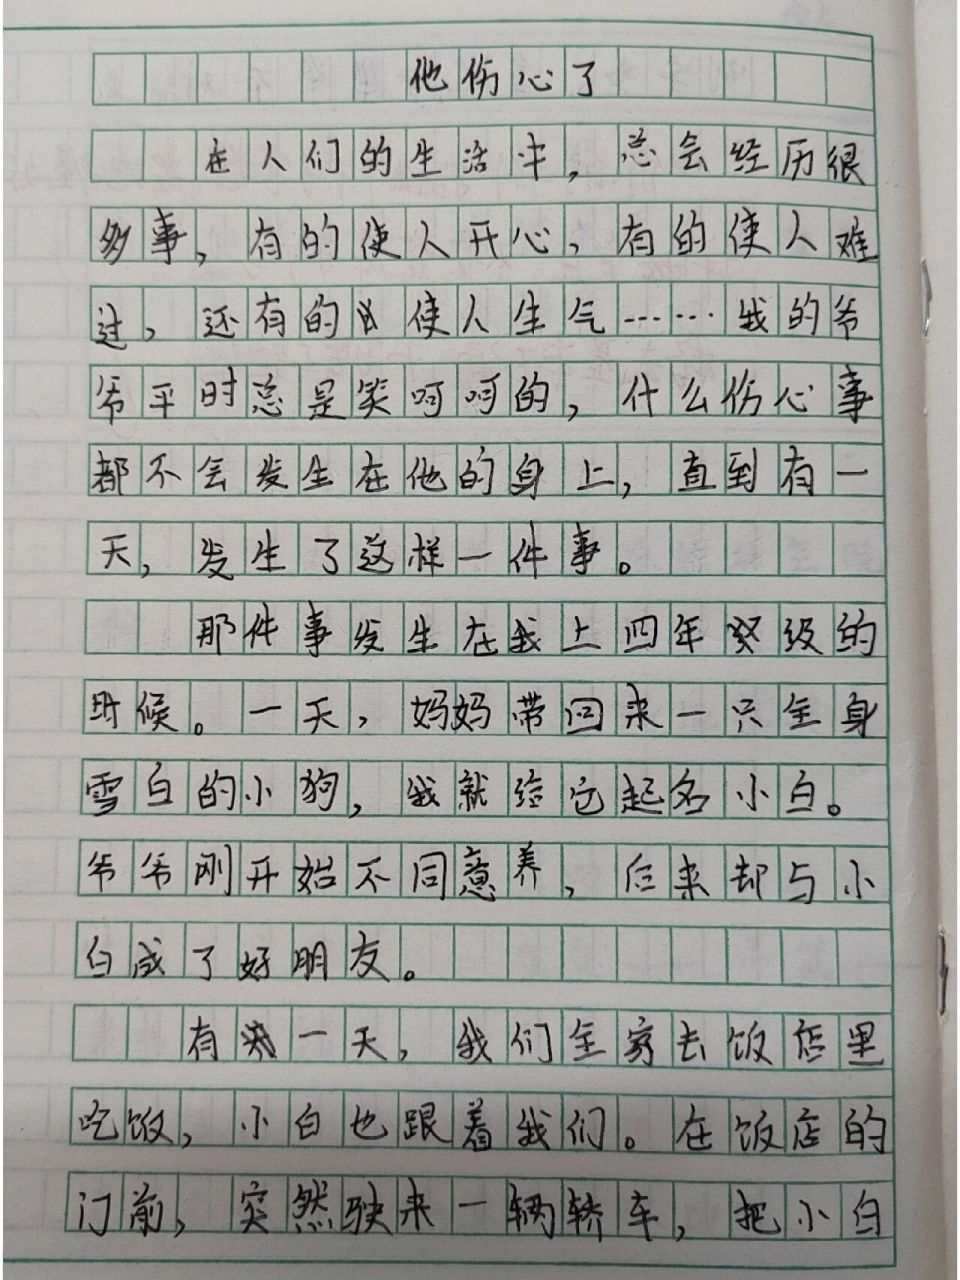 他伤心了
在人们的生活中，总会经历很
多事，有的使人开心，有的使人难
过，还有的使人生气……我的爷
爷平时总是笑呵呵的，什么伤心事
都不会发生在他的身上，直到有一
天，发生了这样一件事。
那件事发生在我上四年级的
时候。一天，妈妈带回来一只全身
雪白的小狗，我就给它起名小白。
爷爷刚开始不同意养，后来却与小
白成了好朋友。
有一天，我们全家去饭店里
吃饭，小白也跟着我们。在饭店的
门前，突然驶来一辆轿车，把小白